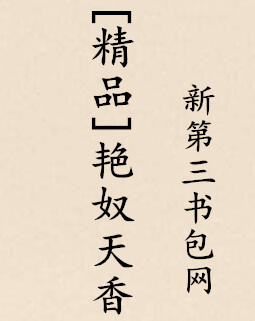 [精品]艳奴天香
新第三书包网